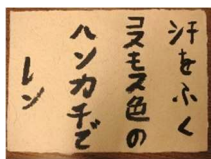 汗をふく
コスモス色の
ハンカチで
レン